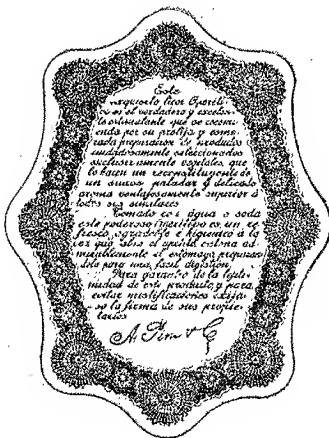 Este
exquisito licor Aperiti-
vo es el verdadero y excelen-
te estimulante que se recomi-
enda por su prolija y esme-
rada preparación de productos
cuidadosamente seleccionados
exclusivamente vegetales, que
lo hacen un reconstituyente de
un suave paladar y delicado
aroma ventajosamente superior á
todos sus similares
Tomado con agua o soda
este poderoso Aperitivo es un re-
fresco agradable e higienico á la
vez que abre el apetito entona ad-
mirablemente el estomago preparan-
dolo para una facil digestión.
Para garantia de la legiti-
midad de este producto y para
evitar mistificaciones exija-
se la firma de sus propie-
tarios